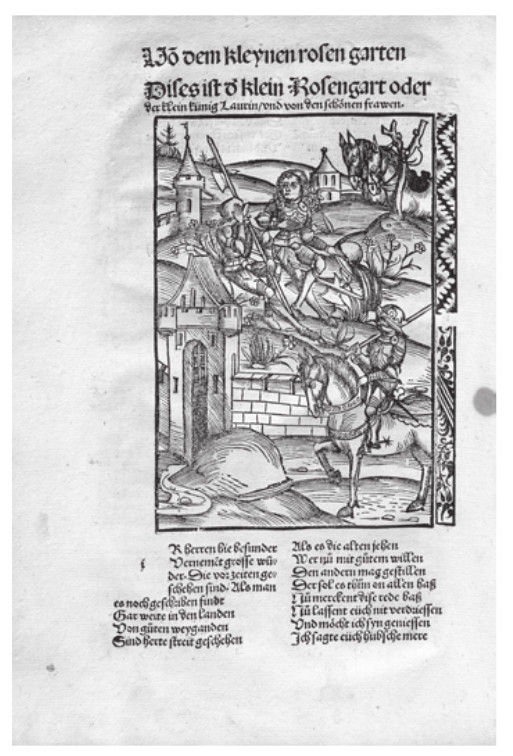 Võ dem kleynen rosen garten
Dises ist d̕ klein Rosengart oder
der klein künig Laurin/vnd von den schönen frawen.
R herren hie besunder
Vernemēt grosse wü⸗
der. Die vor zeiten ge⸗
schehen sind. Als man
es noch geschriben findt
Gar weite in den landen
Von güten weyganden
Sind herte streit geschehen
Als es die alten jehen
Wer nū mit gütem willen
Den andern mag gestillen
Der sol es thün on allen haß
Nū merckent dise rede baß
Nū lassent eüch nit verdriessen
Vnd möcht ich syn geniessen
Ich sagte eüch hübsche mere